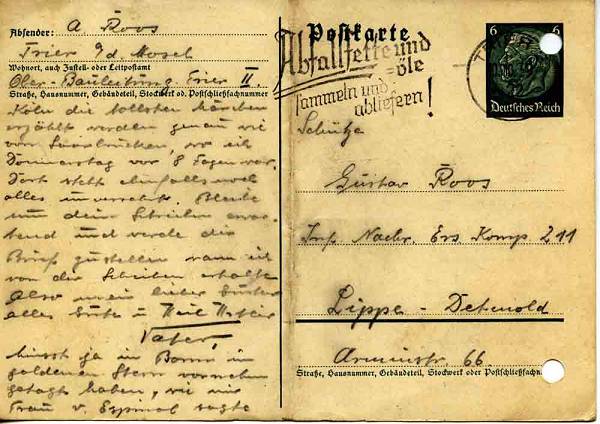 Absender: A Roos
Trier a/d Mosel
Wohnort, auch Zustell- oder Leitpostamt
Ober-Bauleitung Trier II.
Straße, Hausnummer, Gebäudeteil, Stockwerk od. Postschließfachnummer
Köln die tollsten Märchen
erzählt werden genau wie
von Saarbrücken, wo ich
Donnerstag vor 8 Tagen war.
Dort steht ebenfalls noch
alles unversehrt. Bleibe
nun dein Schreiben erwar-
tend und werde die
Briefe zustellen wann ich
von die Schreiben erhalte
Also mein lieber Gustav
alles Gute u Heil Hitler
Vater,
hinst ja in Bonn im
goldenen Stern vornehm
getagt haben, wie mir
Frau v. sagte
Postkarte
Abfallfette und
=öle
sammeln und
abliefern!
TRIER
6 6
Deutsches Reich
Schütze
Gustav Roos
Inf. Nachr. Ers Komp 211
Lippe - Detmold
Arminstr. 66.
Straße, Hausnummer, Gebäudeteil, Stockwerk oder Postschließfachn